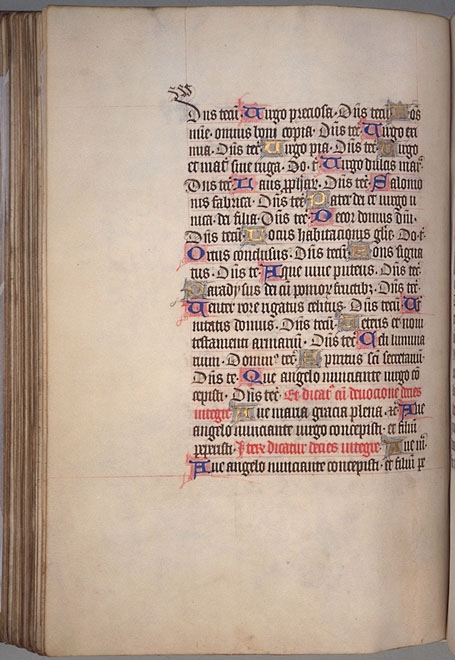 Dñs tecũ. Uirgo preciosa. Dñs tecũ. Fos
nũc. omnis boni copia. Dñs tec̃. Uirgo
nua. Dñs tec̃. Uirgo pia. Dñs tec̃. Uirgo
et mat̃ sine ruga. Do. t̃. Uirgo dulcis mar̃.
Dñs tec̃. Dñs tec̃. Salomo
nis fabrica. Dñs tec̃. Pater dei et uirgo u
nica. dei filia. Dñs tec̃. Decor domus dñi.
Dñs tecũ. Locus habitacionis glie. Do. t̃.
Ortus conclusus. Dñs tecũ. Fons signa
tus. Dñs tc̃. Aque uiue puteus. Dñs tec̃.
Paradysus dei cũ pomor̃ fructib;. Dñs tec̃.
Uenter rore rigatus celitus. Dñs tecũ. Ue
tustatis domus. Dñs tecũ. Ueteris et noui
testamenti armariũ. Dñs tec̃. Celi lumina
rium. Dominꝰ tec̃. Spiritus sci secretariũ.
Dñs tc̃. Que angelo nunciante uirgo cõ
cepisti. Dñs tec̃. Et dicat̃ cũ deuocione decies
integre. Aue maria gracia plena. ⁊c̃. Aue
angelo nunciante uirgo concepisti. et filiũ
peperisti. Iterꝝ dicatur decies integre. Aue m̃.
Aue angelo nunciante concepisti. et filiũ pe